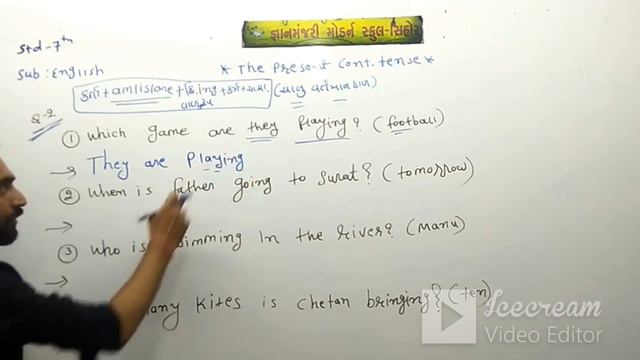 જ્ઞાનમંજરી મોડર્ન સ્કુલ-સિહોર
Std-7th
Sub: English
* The Present Cont. tense *
કર્તા + am/is/are + ક્રિ. ing + કર્મ + અન્ય. (ચાલુ વર્તમાનકાળ)
Q-2
① Which game are they playing? (football)
→ They are playing
② When is father going to Surat? (tomorrow)
→
③ Who is imming In the river? (Manu)
→
any kites is chetan bringing? (ten)
Icecream
Video Editor